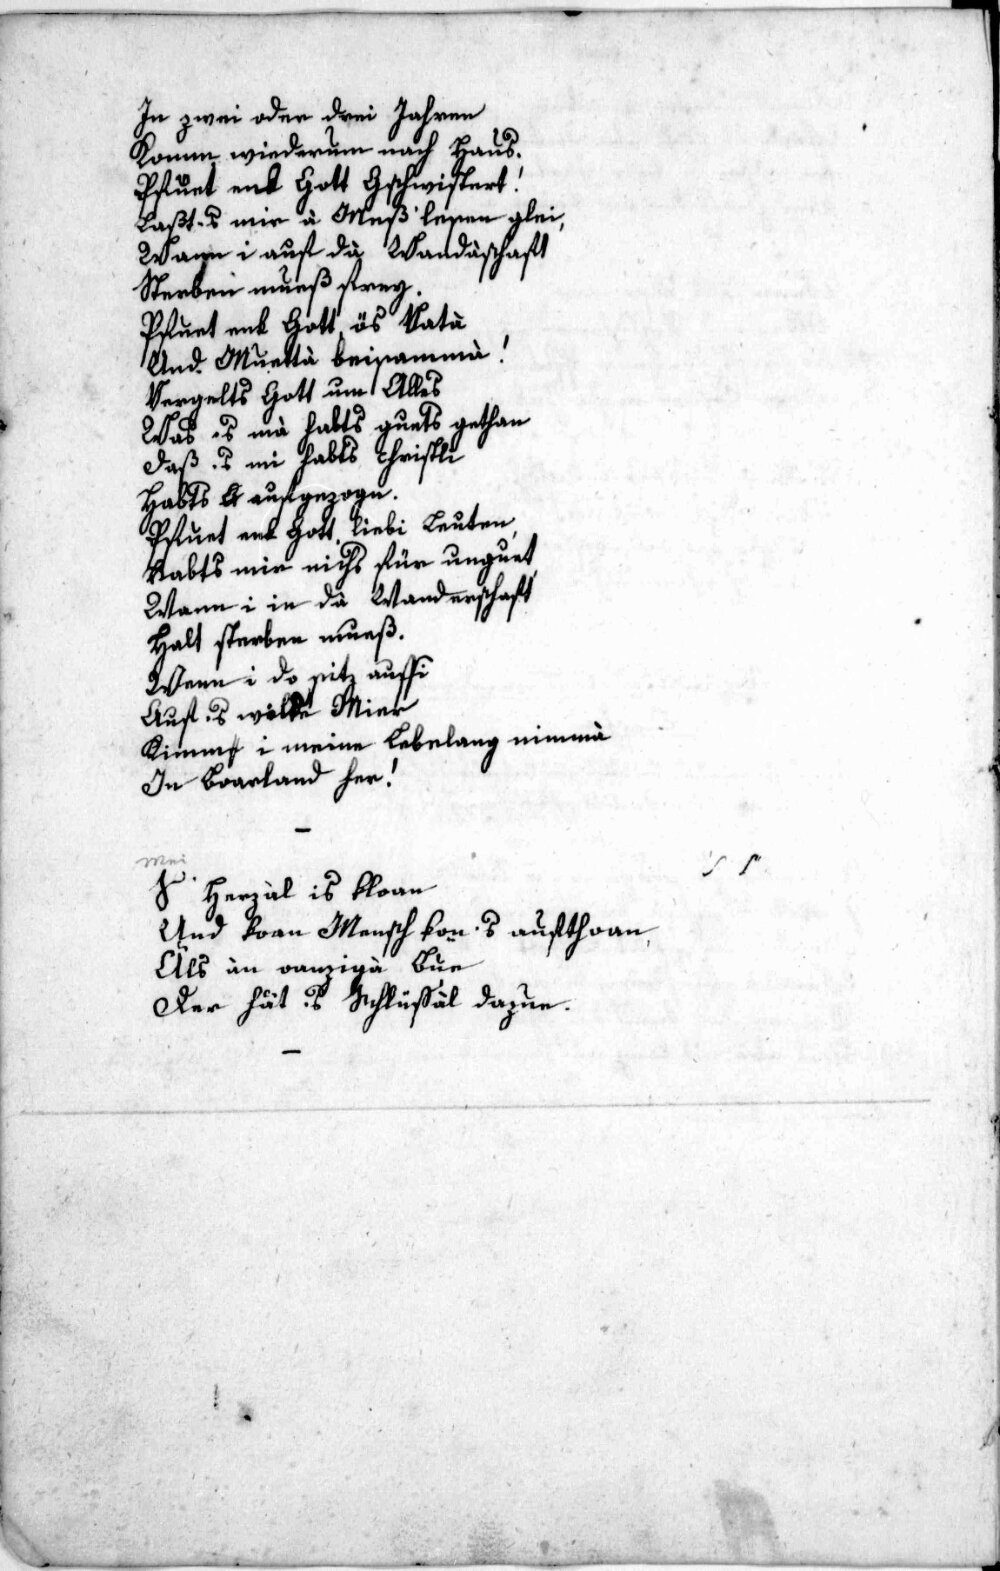 In zwei oder drei Jahren
Komm wiederum nach Haus.
Pfüet enk Gott Gschwistert!
Laßt 's mir à Meß lesen glei,
Wann i auf dà Wandàschaft
Sterben mueß frey.
Pfuet enk Gott, ös Vatà
Und Muettà beisammà!
Vergelts Gott um Alles
Was 's mà habts guets gethan
Daß 's mi habts christli
Habts aufgezogn.
Pfuet enk Gott, liebi Leuten,
Habts mir nichs für unguet,
Wann i in dà Wanderschaft
Halt sterben mueß.
Wenn i do sitz aussi
Auf 's wilde Mier
Kimm i meine Lebelang nimmà
In Boarland her!
–
Mei
Herzàl is kloan
Und koan Mensch kon 's aufthoan,
Als àn oanzigà Bue
Der hät 's Schlüssàl dazue.
–